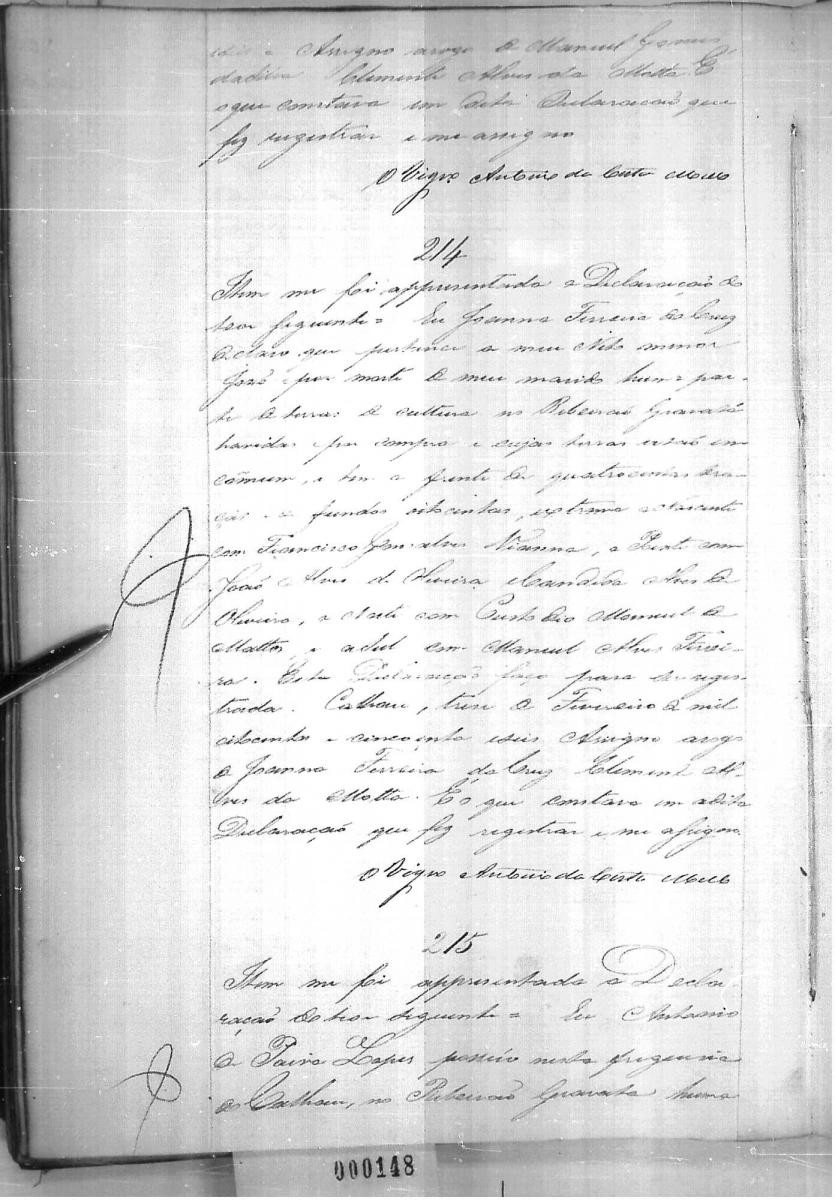 Assigno arogo de Manuel Gomes
Clemente Alves da Motta. E
o que constava em dita Declaração que
fiz registrar e me assigno
O Vigrº Antonio da Costa Mello
214
Item me foi appresentada a Declaração do
teor seguinte = Eu Joanna Ferreira da Cruz
declaro que pertence a meu Neto menor
José e por morte de meu marido huma par-
te de terras de cultura no Ribeirão Gravatá
havidas por compra e cujas terras estão em
cõmum, e tem a frente de quatrocentas bra-
ças e de fundos oitocentas, extrema ao Nascente
com Francisco Gonsalves Vianna, a Poente com
João Alves de Oliveira e Candida Alves de
Oliveira, a Norte com Custodio Manuel de
Mattos e a Sul com Manuel Alves Ferrei-
ra. Esta Declaração faço para ser regis-
trada. Calhau, treze de Fevereiro de mil
oitocentos e cincoenta e seis Assigno arogo
de Joanna Ferreira da Cruz Clemente Al-
ves da Motta. E o que constava em adita
Declaração que fiz registrar e me assigno.
O Vigrº Antonio da Costa Mello
215
Item me foi appresentada a Decla-
ração do teor seguinte = Eu Antonio
de Paiva Lopes possuo nesta freguesia
do Calhau, no Ribeirão Gravatá huma
000148